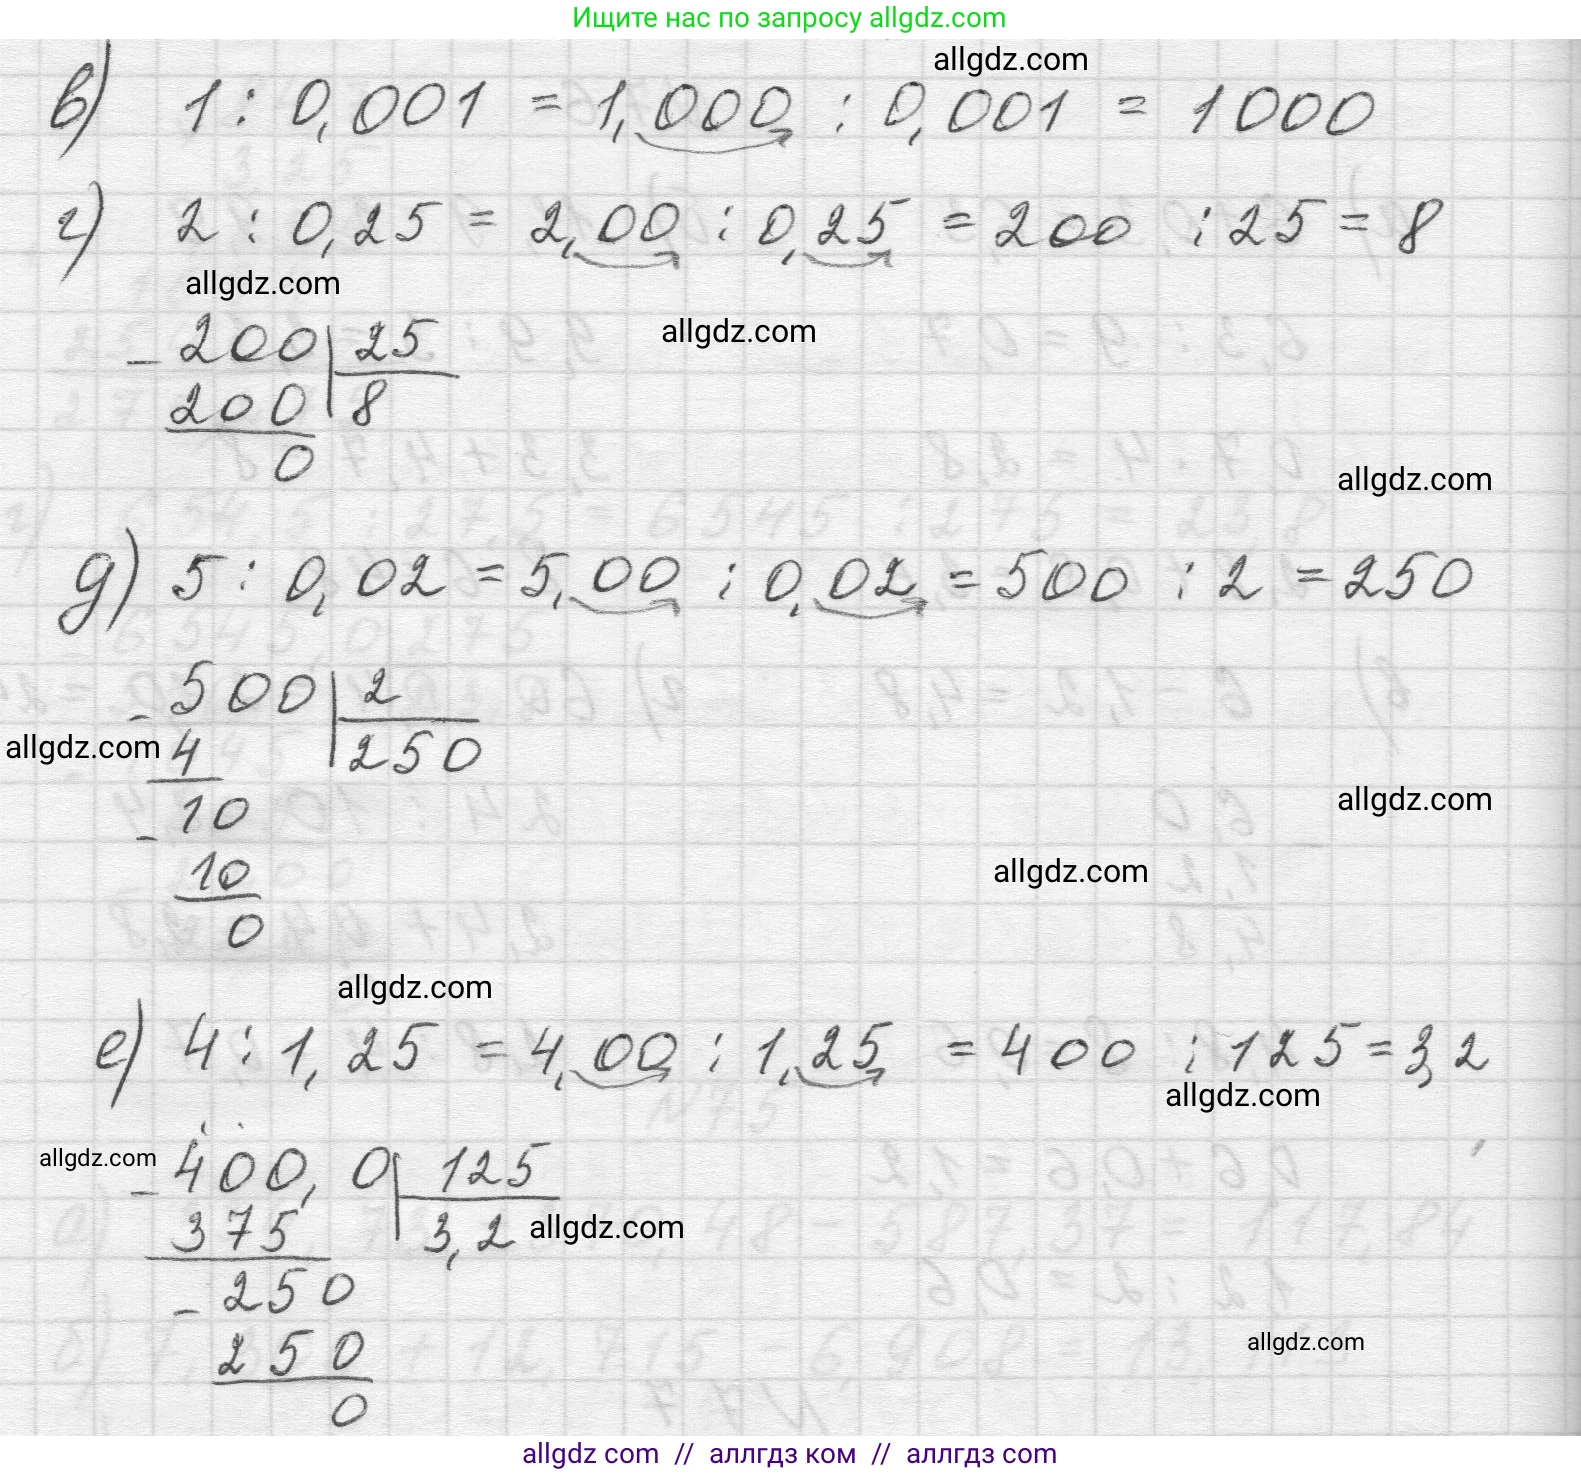 Ищите нас по запросу allgdz.com
allgdz.com
в) 1 : 0,001 = 1,000 : 0,001 = 1000
г) 2 : 0,25 = 2,00 : 0,25 = 200 : 25 = 8
allgdz.com
allgdz.com
- 200 | 25
200 | 8
0
allgdz.com
д) 5 : 0,02 = 5,00 : 0,02 = 500 : 2 = 250
- 500 | 2
allgdz.com
4 | 250
- 10
allgdz.com
10
allgdz.com
0
allgdz.com
е) 4 : 1,25 = 4,00 : 1,25 = 400 : 125 = 3,2
allgdz.com
allgdz.com
- 400,0 | 125
375 | 3,2
allgdz.com
- 250
250
allgdz.com
0
allgdz com // аллгдз ком // аллгдз com